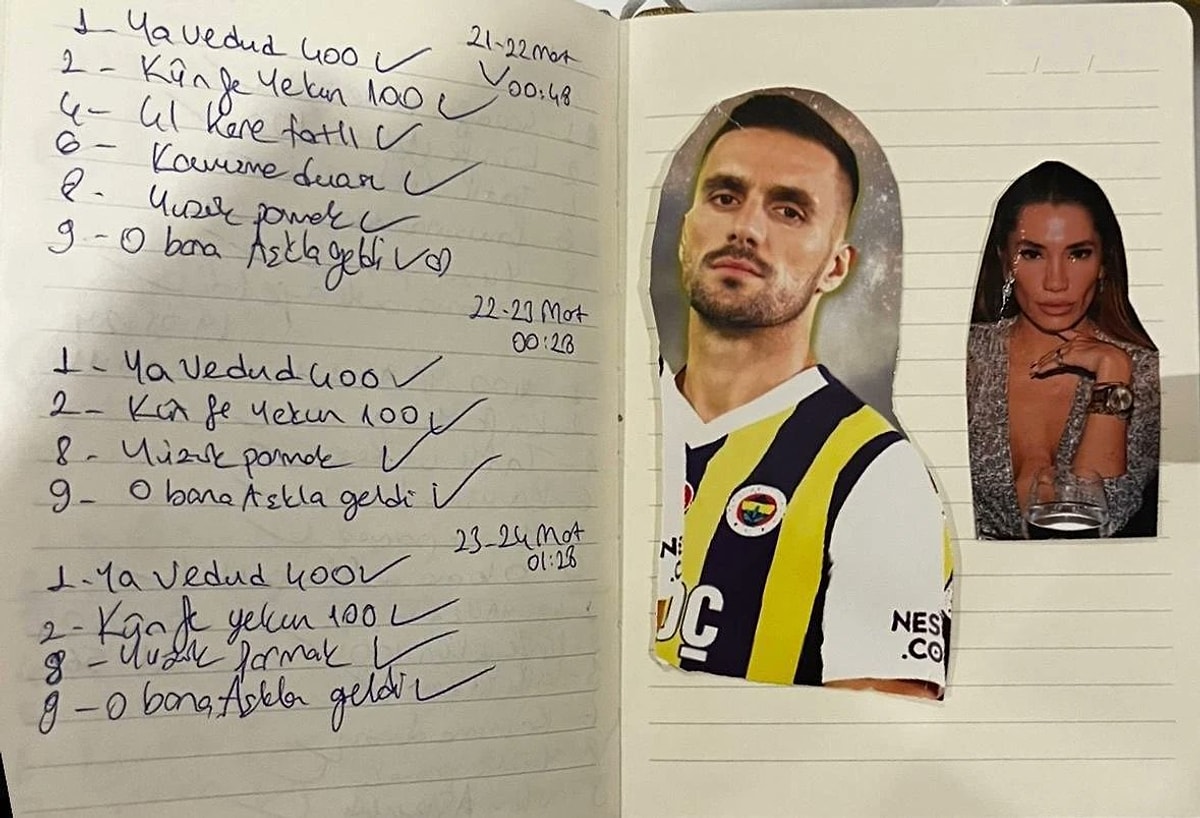 1- Ya Vedud 400 ✓
21-22 Mart
✓00:48
2 - Kün fe Yekun 100 ✓
4- 41 Kere tatlı ✓
6 - Kavuşma duası ✓
8 - Yüzük parmak ✓
9 - O bana Aşkla geldi ✓
22-23 Mart
00:28
1 - Ya Vedud 400 ✓
2 - Kün fe Yekun 100 ✓
8 - Yüzük parmak ✓
9 - O bana Aşkla geldi ✓
23-24 Mart
01:28
1 - Ya Vedud 400 ✓
2 - Kün fe yekun 100 ✓
8 - Yüzük parmak ✓
9 - O bana Aşkla geldi ✓
NES
.CO